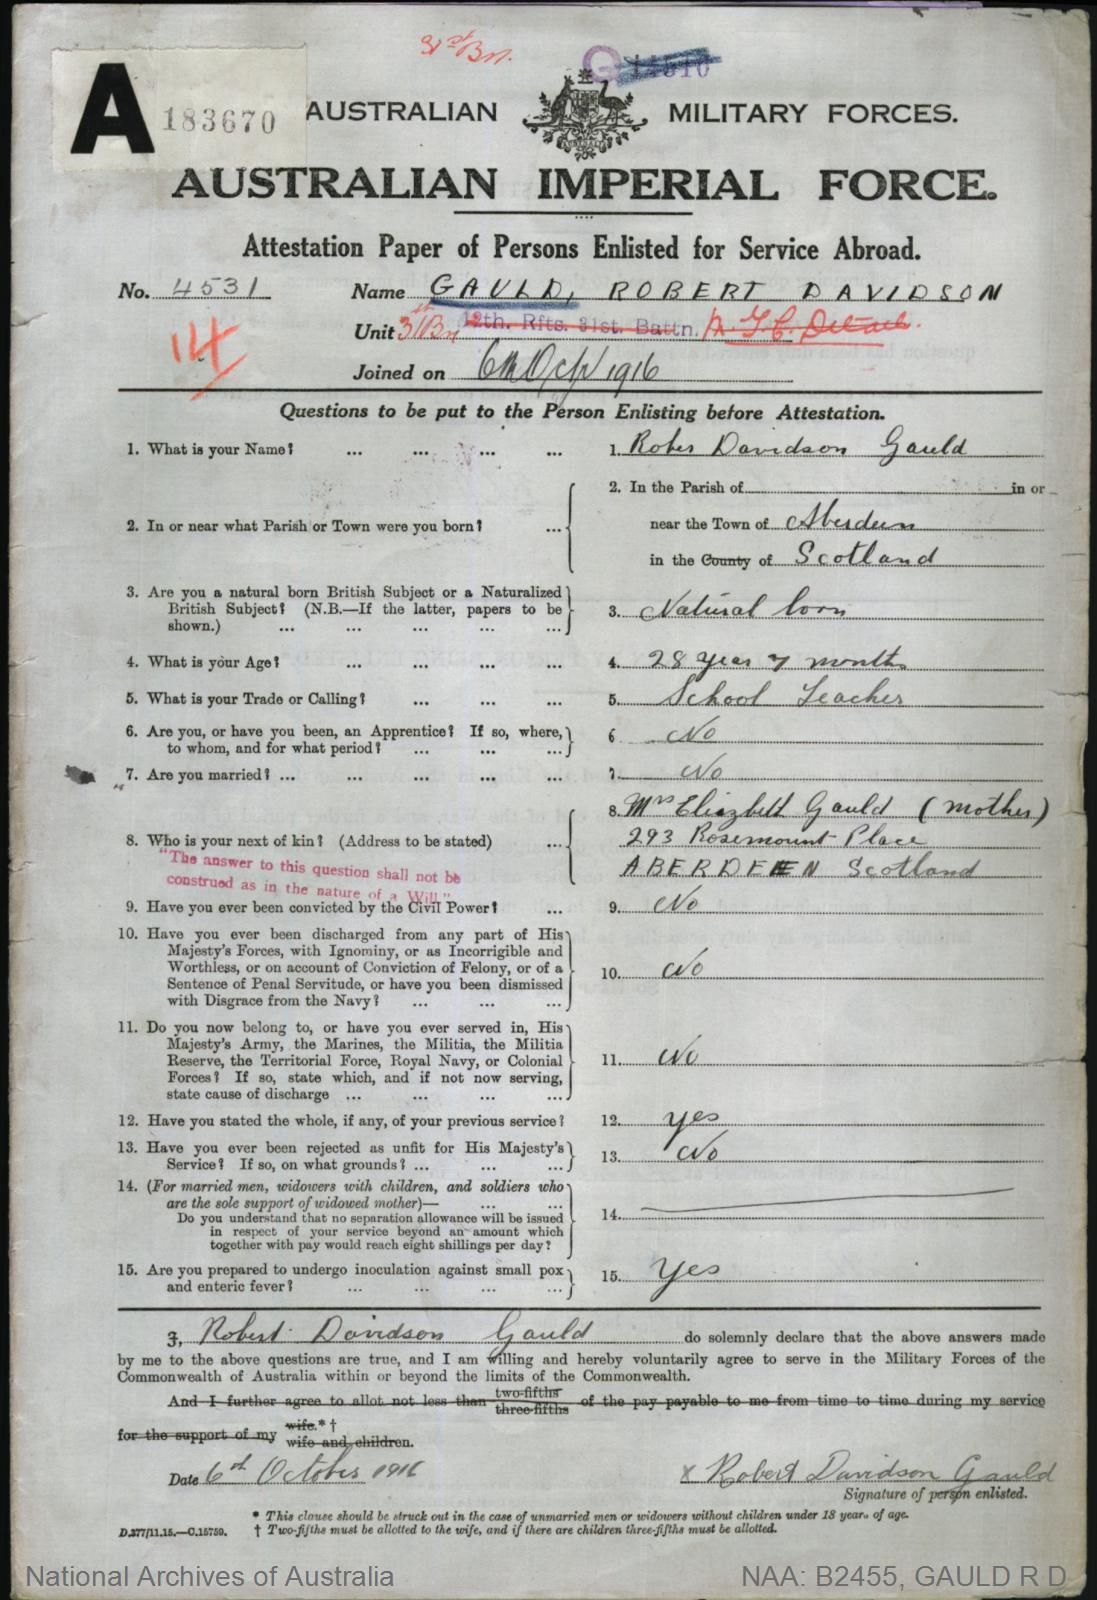 31st Bn.
G 14510
A 183670
AUSTRALIAN MILITARY FORCES.
AUSTRALIAN IMPERIAL FORCE.
Attestation Paper of Persons Enlisted for Service Abroad.
No. 4531 Name GAULD, ROBERT DAVIDSON
Unit 31st Bn 12th. Rfts. 31st. Battn. M.G.C. Details.
14
Joined on 6th Oct 1916
Questions to be put to the Person Enlisting before Attestation.
1. What is your Name? ... ... ... ... 1. Rober Davidson Gauld
2. In the Parish of in or
2. In or near what Parish or Town were you born? ... near the Town of Aberdeen
in the County of Scotland
3. Are you a natural born British Subject or a Naturalized
British Subject? (N.B.—If the latter, papers to be
shown.) ... ... ... ... ... 3. Natural born
4. What is your Age? ... ... ... ... 4. 28 year 7 months
5. What is your Trade or Calling? ... ... ... 5. School Teacher
6. Are you, or have you been, an Apprentice? If so, where,
to whom, and for what period? ... ... ... 6 No
7. Are you married? ... ... ... ... ... 7. No
8. Mrs Elizabeth Gauld (mother)
8. Who is your next of kin? (Address to be stated) ... 293 Rosemount Place
ABERDEEN Scotland
"The answer to this question shall not be
construed as in the nature of a Will."
9. Have you ever been convicted by the Civil Power? ... 9. No
10. Have you ever been discharged from any part of His
Majesty's Forces, with Ignominy, or as Incorrigible and
Worthless, or on account of Conviction of Felony, or of a
Sentence of Penal Servitude, or have you been dismissed
with Disgrace from the Navy? ... ... ... 10. No
11. Do you now belong to, or have you ever served in, His
Majesty's Army, the Marines, the Militia, the Militia
Reserve, the Territorial Force, Royal Navy, or Colonial
Forces? If so, state which, and if not now serving,
state cause of discharge ... ... ... ... 11. No
12. Have you stated the whole, if any, of your previous service? 12. yes
13. Have you ever been rejected as unfit for His Majesty's
Service? If so, on what grounds? ... ... ... 13. No
14. (For married men, widowers with children, and soldiers who
are the sole support of widowed mother)— ... ...
Do you understand that no separation allowance will be issued
in respect of your service beyond an amount which
together with pay would reach eight shillings per day? 14.
15. Are you prepared to undergo inoculation against small pox
and enteric fever? ... ... ... ... 15. Yes
I, Robert Davidson Gauld do solemnly declare that the above answers made
by me to the above questions are true, and I am willing and hereby voluntarily agree to serve in the Military Forces of the
Commonwealth of Australia within or beyond the limits of the Commonwealth.
And I further agree to allot not less than two-fifths three-fifths of the pay payable to me from time to time during my service
for the support of my wife.*† wife and children.
Date 6th October 1916 x Robert Davidson Gauld
Signature of person enlisted.
* This clause should be struck out in the case of unmarried men or widowers without children under 18 years of age.
D.377/11.15.—C.15759. † Two-fifths must be allotted to the wife, and if there are children three-fifths must be allotted.
National Archives of Australia NAA: B2455, GAULD R D